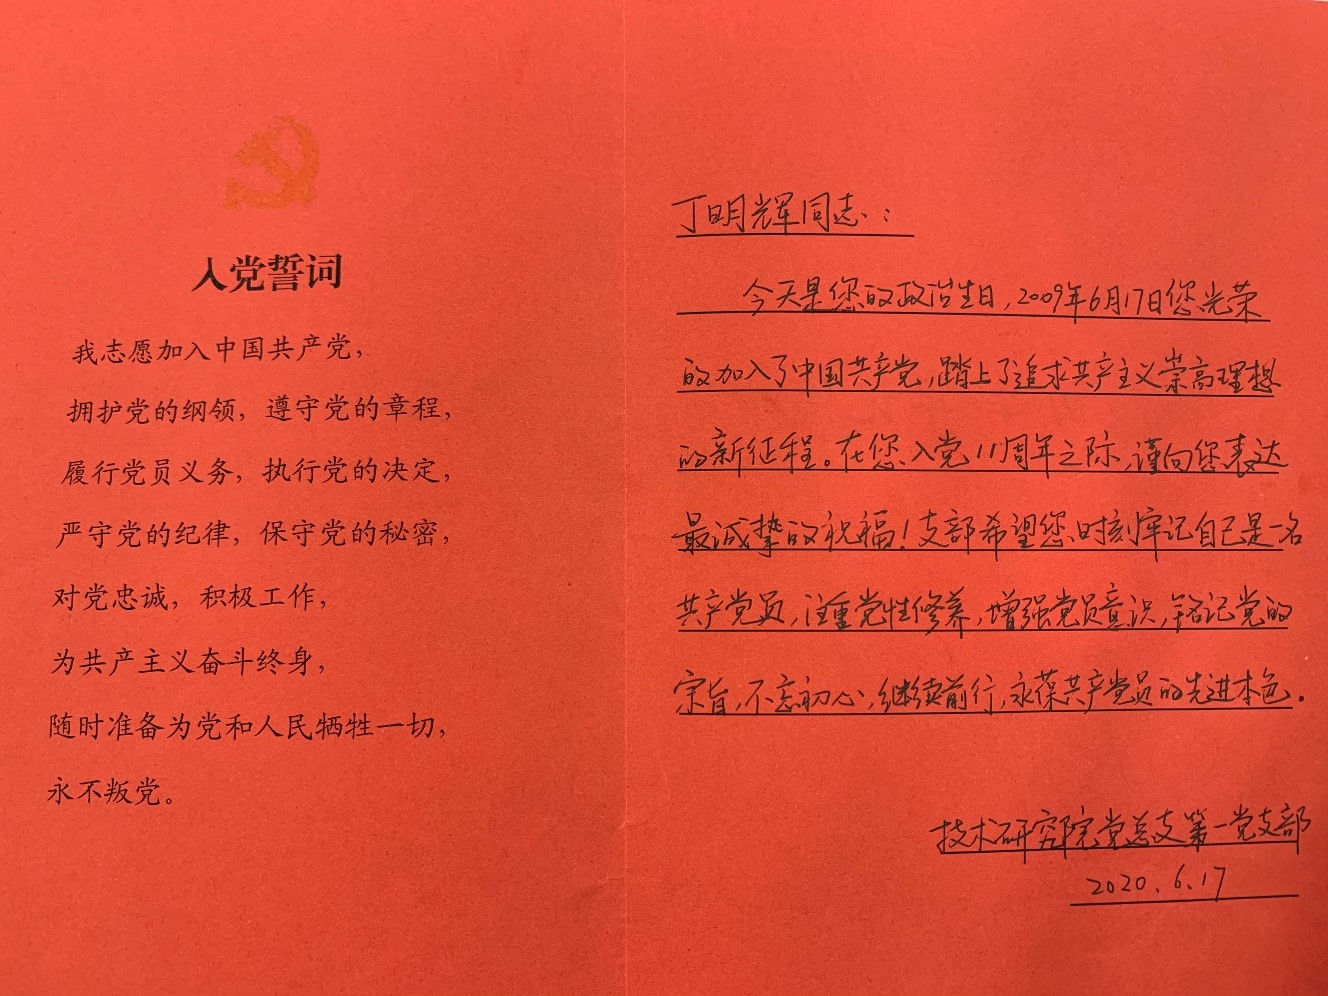 入党誓词
我志愿加入中国共产党，
拥护党的纲领，遵守党的章程，
履行党员义务，执行党的决定，
严守党的纪律，保守党的秘密，
对党忠诚，积极工作，
为共产主义奋斗终身，
随时准备为党和人民牺牲一切，
永不叛党。
丁明辉同志：
今天是您的政治生日，2009年6月17日您光荣
的加入了中国共产党，踏上了追求共产主义崇高理想
的新征程。在您入党11周年之际，谨向您表达
最诚挚的祝福！支部希望您时刻牢记自己是一名
共产党员，注重党性修养，增强党员意识，铭记党的
宗旨，不忘初心，继续前行，永葆共产党员的先进本色。
技术研究院党总支第一党支部
2020.6.17